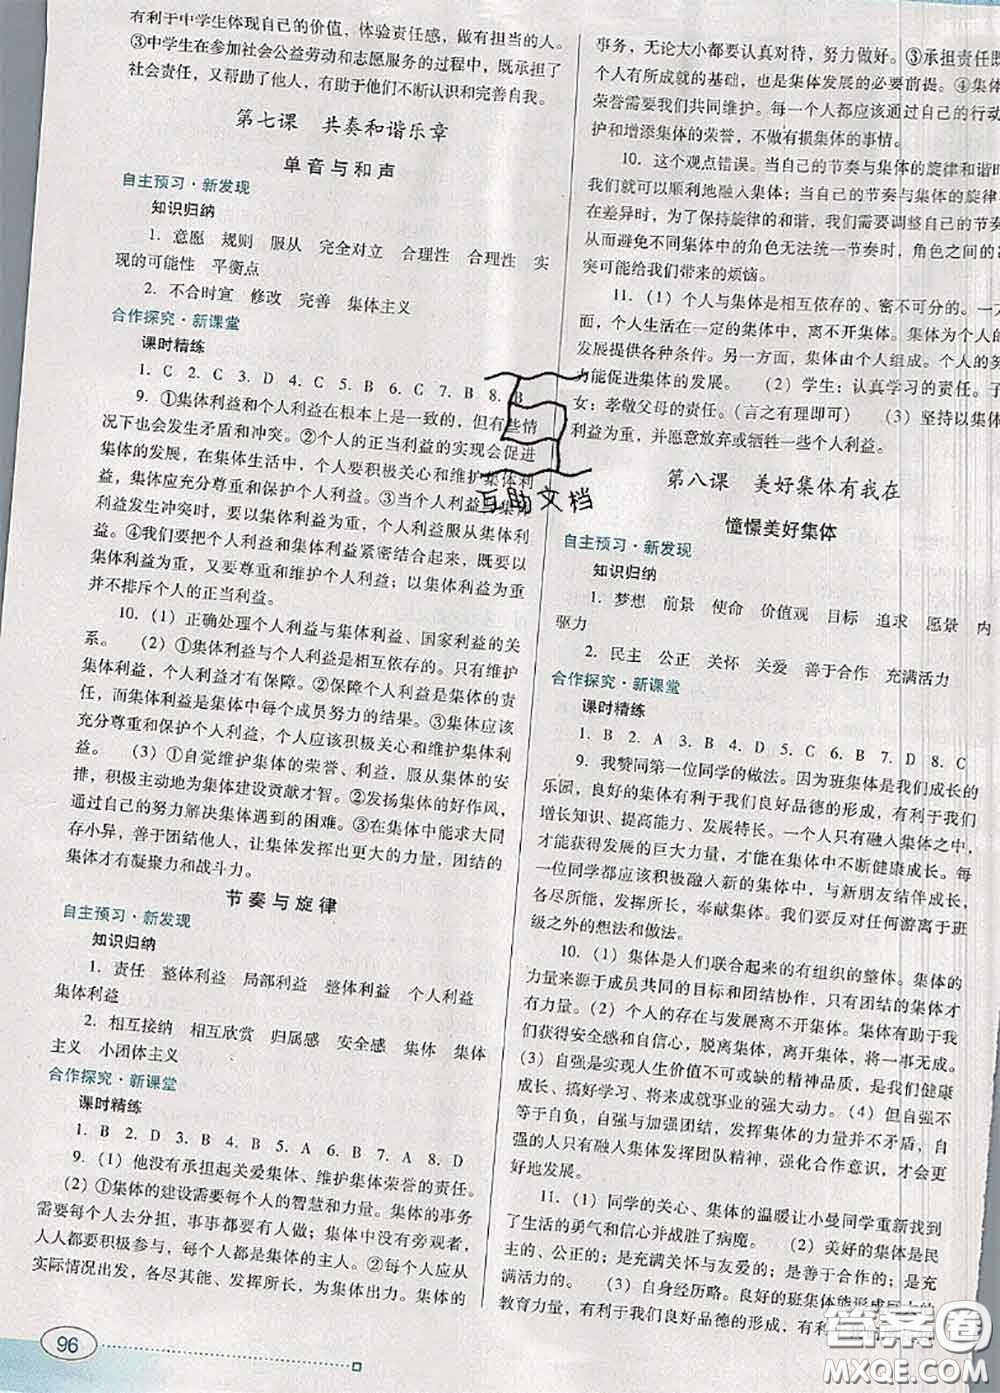 有利于中学生体现自己的价值，体验责任感，做有担当的人。
③中学生在参加社会公益劳动和志愿服务的过程中，既承担了
社会责任，又帮助了他人，有助于他们不断认识和完善自我。
第七课　共奏和谐乐章
单音与和声
自主预习·新发现
知识归纳
1. 意愿　规则　服从　完全对立　合理性　合理性　实
现的可能性　平衡点
2. 不合时宜　修改　完善　集体主义
合作探究·新课堂
课时精练
1. C　2. C　3. D　4. C　5. B　6. C　7. B　8. B
9. ①集体利益和个人利益在根本上是一致的，但有些情
况下也会发生矛盾和冲突。②个人的正当利益的实现会促进
集体的发展，在集体生活中，个人要积极关心和维护集体利
益，集体应充分尊重和保护个人利益。③当个人利益与集体
利益发生冲突时，要以集体利益为重，个人利益服从集体利
益。④我们要把个人利益和集体利益紧密结合起来，既要以
集体利益为重，又要尊重和维护个人利益；以集体利益为重
并不排斥个人的正当利益。
10. （1）正确处理个人利益与集体利益、国家利益的关
系。　（2）①集体利益与个人利益是相互依存的。只有维护
集体利益，个人利益才有保障。②保障个人利益是集体的责
任，而集体利益是集体中每个成员努力的结果。③集体应该
充分尊重和保护个人利益，个人应该积极关心和维护集体利
益。　（3）①自觉维护集体的荣誉、利益，服从集体的安
排，积极主动地为集体建设贡献才智。②发扬集体的好作风，
通过自己的努力解决集体遇到的困难。③在集体中能求大同
存小异，善于团结他人，让集体发挥出更大的力量，团结的
集体才有凝聚力和战斗力。
节奏与旋律
自主预习·新发现
知识归纳
1. 责任　整体利益　局部利益　整体利益　个人利益
集体利益
2. 相互接纳　相互欣赏　归属感　安全感　集体　集体
主义　小团体主义
合作探究·新课堂
课时精练
1. B　2. D　3. B　4. B　5. A　6. B　7. A　8. D
9. （1）他没有承担起关爱集体、维护集体荣誉的责任。
（2）①集体的建设需要每个人的智慧和力量。集体的事务
需要每个人去分担，事事都要有人做；集体中没有旁观者，
人人都要积极参与，每个人都是集体的主人。②每个人应从
实际情况出发，各尽其能、发挥所长，为集体出力。集体的
事务，无论大小都要认真对待，努力做好。③承担责任既
个人有所成就的基础，也是集体发展的必要前提。④集体
荣誉需要我们共同维护。每一个人都应该通过自己的行动
护和增添集体的荣誉，不做有损集体的事情。
10. 这个观点错误。当自己的节奏与集体的旋律和谐时
我们就可以顺利地融入集体；当自己的节奏与集体的旋律
在差异时，为了保持旋律的和谐，我们需要调整自己的节奏
从而避免不同集体中的角色无法统一节奏时，角色之间的
突可能给我们带来的烦恼。
11. （1）个人与集体是相互依存的、密不可分的。一
面，个人生活在一定的集体中，离不开集体。集体为个人的
发展提供各种条件。另一方面，集体由个人组成。个人的努
力能促进集体的发展。　（2）学生：认真学习的责任。子
女：孝敬父母的责任。（言之有理即可）　（3）坚持以集体
利益为重，并愿意放弃或牺牲一些个人利益。
第八课　美好集体有我在
憧憬美好集体
自主预习·新发现
知识归纳
1. 梦想　前景　使命　价值观　目标　追求　愿景　内
驱力
2. 民主　公正　关怀　关爱　善于合作　充满活力
合作探究·新课堂
课时精练
1. B　2. A　3. B　4. D　5. C　6. B　7. D　8. C
9. 我赞同第一位同学的做法。因为班集体是我们成长的
乐园，良好的集体有利于我们良好品德的形成，有利于我们
增长知识、提高能力、发展特长。一个人只有融入集体之中，
才能获得发展的巨大力量，才能在集体中不断健康成长。每
一位同学都应该积极融入新的集体，与新朋友结伴成长，
各尽所能，发挥所长，奉献集体。我们要反对任何游离于班
级之外的想法和做法。
10. （1）集体是人们联合起来的有组织的整体。集体的
力量来源于成员共同的目标和团结协作，只有团结的集体才
有力量。（2）个人的存在与发展离不开集体。集体有助于我
们获得安全感和自信心，脱离集体，离开集体，将一事无成。
（3）自强是实现人生价值不可或缺的精神品质，是我们健康
成长、搞好学习、将来成就事业的强大动力。（4）但自强不
等于自负，自强与加强团结，发挥集体的力量并不矛盾，自
强的人只有融入集体发挥团队精神，强化合作意识，才会更
好地发展。
11. （1）同学的关心、集体的温暖让小曼同学重新找到
了生活的勇气和信心并战胜了病魔。　（2）美好的集体是民
主的、公正的；是充满关怀与友爱的；是善于合作的；是充
满活力的。　（3）自身经历略。良好的班集体能形成巨大的
教育力量，有利于我们良好品德的形成，有利
96
互助文档
答案圈
MXQE.COM